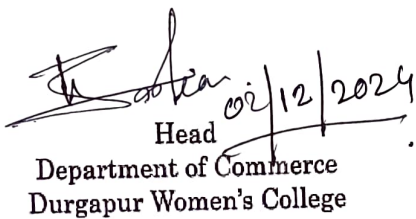 02/12/2024
Head
Department of Commerce
Durgapur Women's College